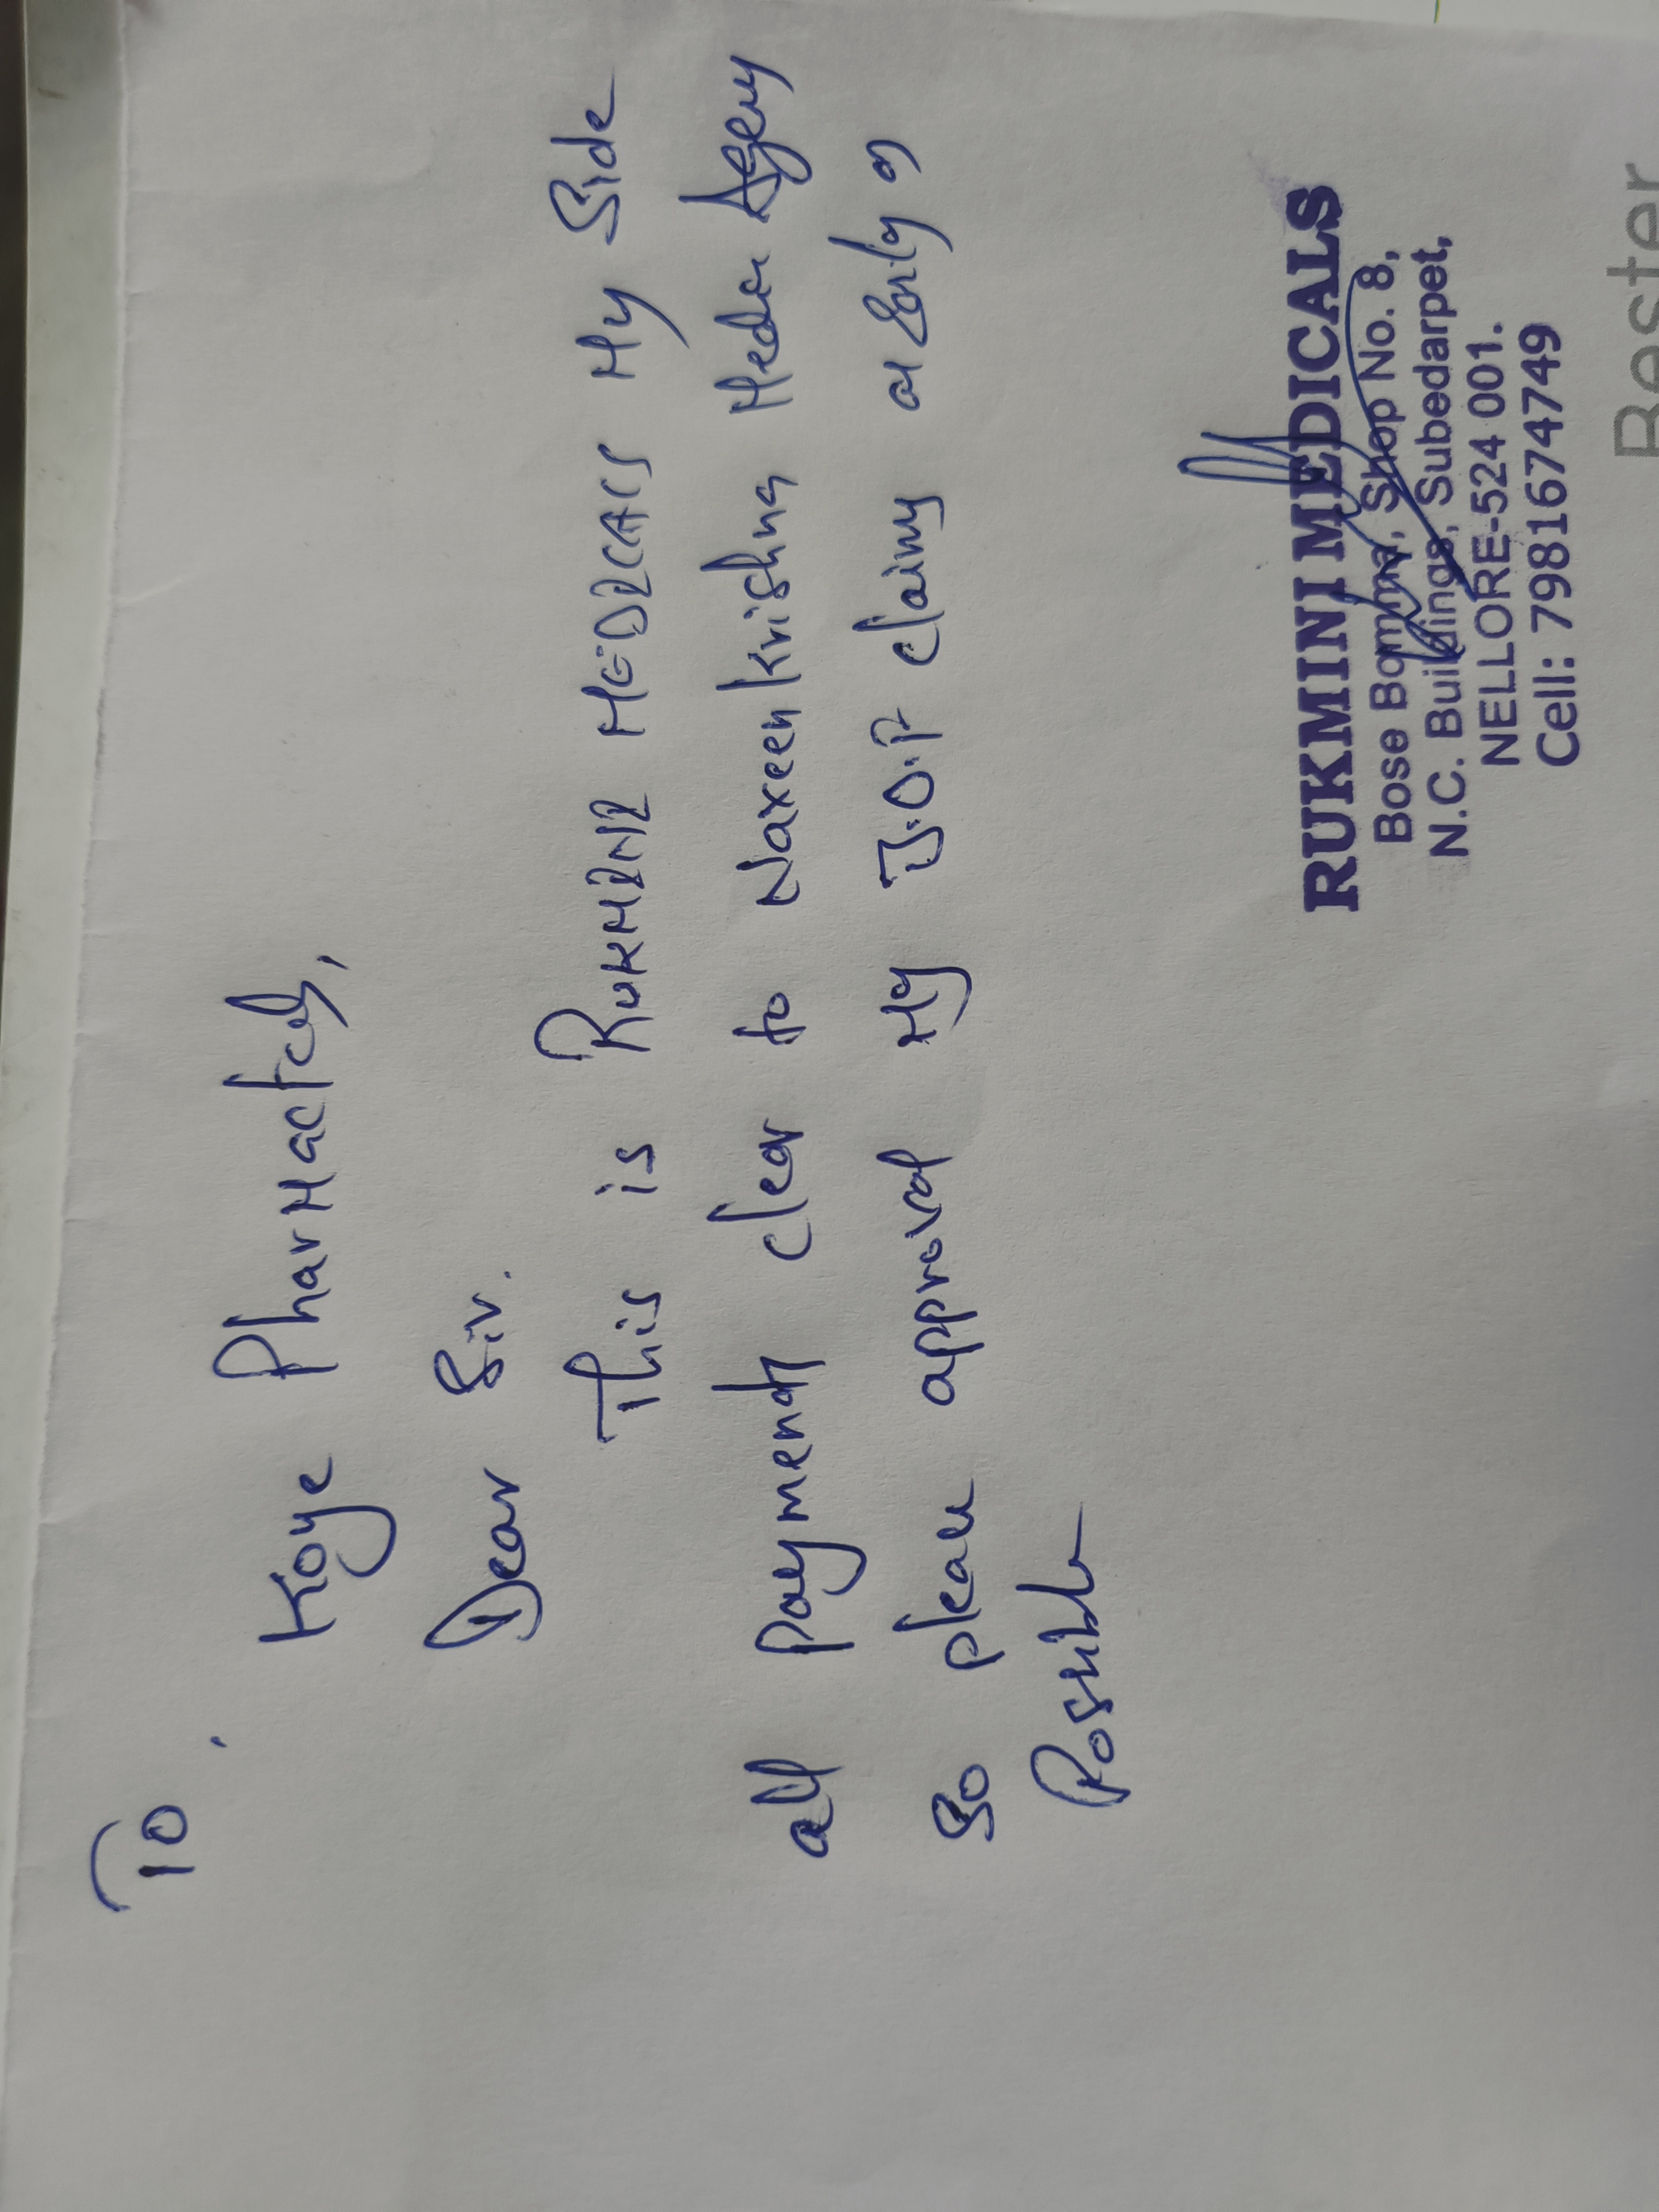 To,
Koye Pharmactcy,
Dear Sir.
This is RUKMINI MEDICALS My Side
all Payment clear to Naveen krishna Medi Agency
So please approval My D.O.P claims as Early as
Possible
RUKMINI MEDICALS
Bose Bomma, Shop No. 8,
N.C. Buildings, Subedarpet,
NELLORE-524 001.
Cell: 7981674749
Bester